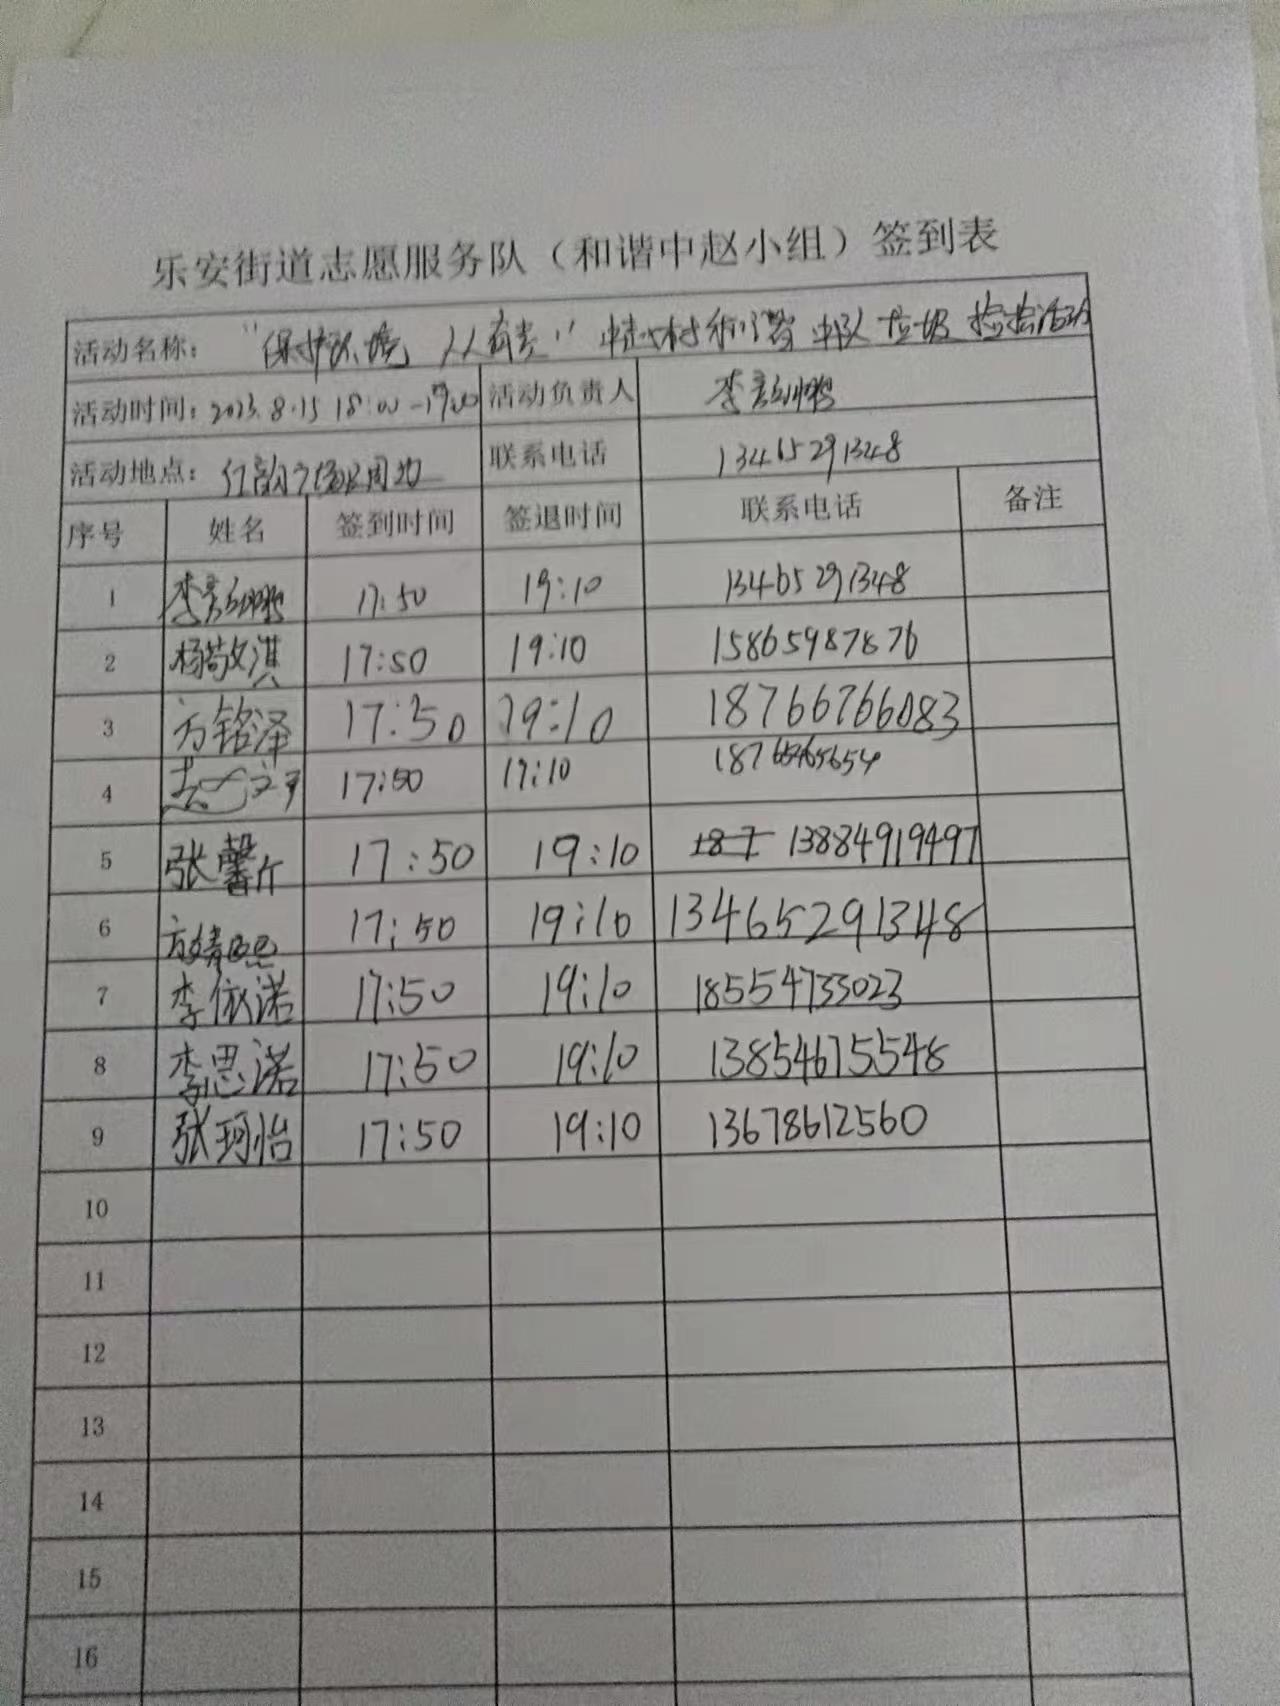 乐安街道志愿服务队（和谐中赵小组）签到表
活动名称： "保护环境 人人有责" 中赵村和谐中队垃圾捡拾活动
活动时间：2023.8.15 18:00-19:00 活动负责人 李
活动地点： 联系电话 13465291348
序号 姓名 签到时间 签退时间 联系电话 备注
1 李 17:50 19:10 13465291348
2 杨敬淇 17:50 19:10 15865987876
3 方铭泽 17:50 19:10 18766766083
4 17:50 19:10
5 张馨 17:50 19:10 187 13884919497
6 17:50 19:10 13465291348
7 李依诺 17:50 19:10 18554733023
8 李思诺 17:50 19:10 13854675548
9 张珂怡 17:50 19:10 13678612560
10
11
12
13
14
15
16